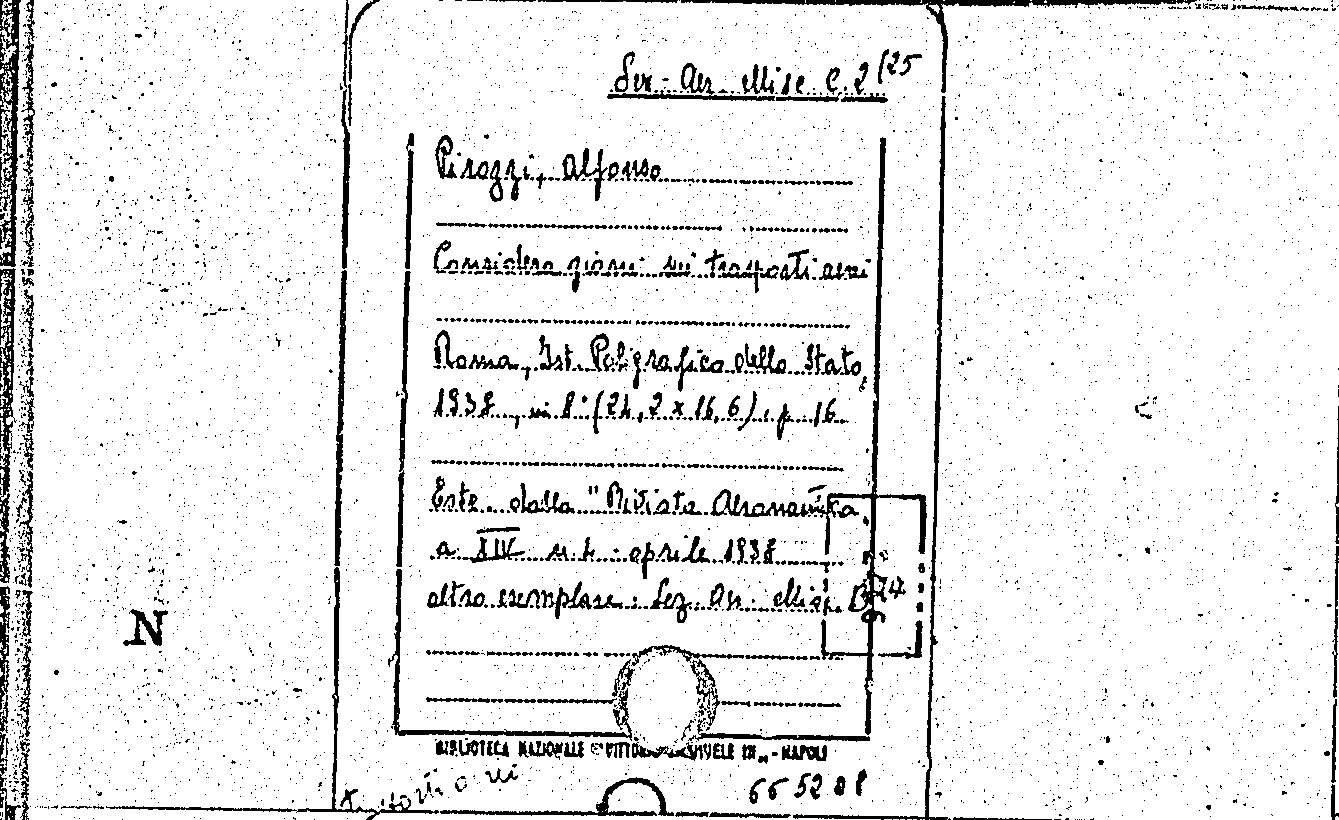 Sez. Aer. Misc C. 2/25
Pirozzi, Alfonso
Considerazioni sui trasporti aerei
Roma, Ist. Poligrafico dello Stato,
1938, in 8° (24,2 x 16,6). p. 16
Estr. dalla "Rivista Aeronautica
a XIV n. 4. aprile 1938
altro esemplare. Sez. Aer. Misc. B
N
BIBLIOTECA NAZIONALE "VITTORIO EMANUELE III" - NAPOLI
665208